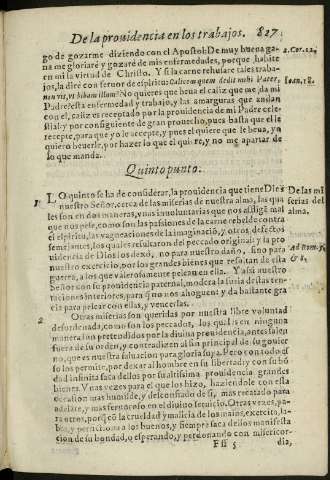 De la prouidencia en los trabajos. 827
go de gozarme diziendo con el Apostol: De muy buena ga-
na me gloriaré y gozaré de mis enfermedades, porque habite
en mi la virtud de Christo. Y si la carne rehusare tales traba-
jos, la diré con feruor de espiritu: Calicem quem dedit mihi Pater,
non vis, vt bibam illum? No quieres que beua el caliz que me da mi
Padre? esta enfermedad y trabajo, y las amarguras que andan
con el, caliz es receptado por la prouidencia de mi Padre cele-
stial: y por consiguiente de gran prouecho, pues basta que el le
recepte, para que yo le accepte, y pues el quiere que le beua, yo
quiero beuerle, por hazer lo que el quiere, y no me apartar de
lo que manda.
2. Cor. 12.
Ioan. 18.
Quinto punto.
1 LO quinto se ha de considerar, la prouidencia que tiene Dios
nuestro Señor, cerca de las miserias de nuestra alma, las qua
les son en dos maneras, vnas inuoluntarias que nos afligẽ mal
que nos pese, como son las passiones de la carne rebelde contra
el espiritu, las vagueaciones de la imaginaciõ, y otros defectos
semejantes, los quales resultaron del peccado original y la pro
uidencia de Dios los dexó, no para nuestro daño, sino para
nuestro exercicio, por los grandes bienes que resultan de esta
guerra, a los que valerosamente pelean en ella. Y assi nuestro
Señor con su prouidencia paternal, modera la furia destas ten-
taciones interiores, para que no nos ahoguen; y da bastante gra
cia para pelear con ellas, y vencerlas.
De las mi
serias del
alma.
Ad Rom. 7.
& 8.
2 Otras miserias son queridas por nuestra libre voluntad
desordenada, como son los peccados, los quales en ninguna
manera son pretendidos por la diuina prouidencia, antes salen
fuera de su orden, y contradizen al fin principal de su gouier
no, que es nuestra saluacion para gloria suya. Pero con todo es-
so los permite, por dexar al hombre en su libertad; y con su bõ
dad infinita saca dellos por su altissima prouidencia grandes
bienes. Vnas vezes para el que los hizo, haziendole con esta
ocasion mas humilde, y desconfiado de si, mas recatado para
adelãte, y mas feruoroso en el diuino seruicio. Otras vezes, pa-
ra otros, porq̃ cõ la crueldad y malicia de los malos, exercita, la-
bra, y perficiona a los buenos, y siempre saca dellos manifesta
cion de su bondad, o esperando, y perdonando con misericor-
Fff 5 dia,